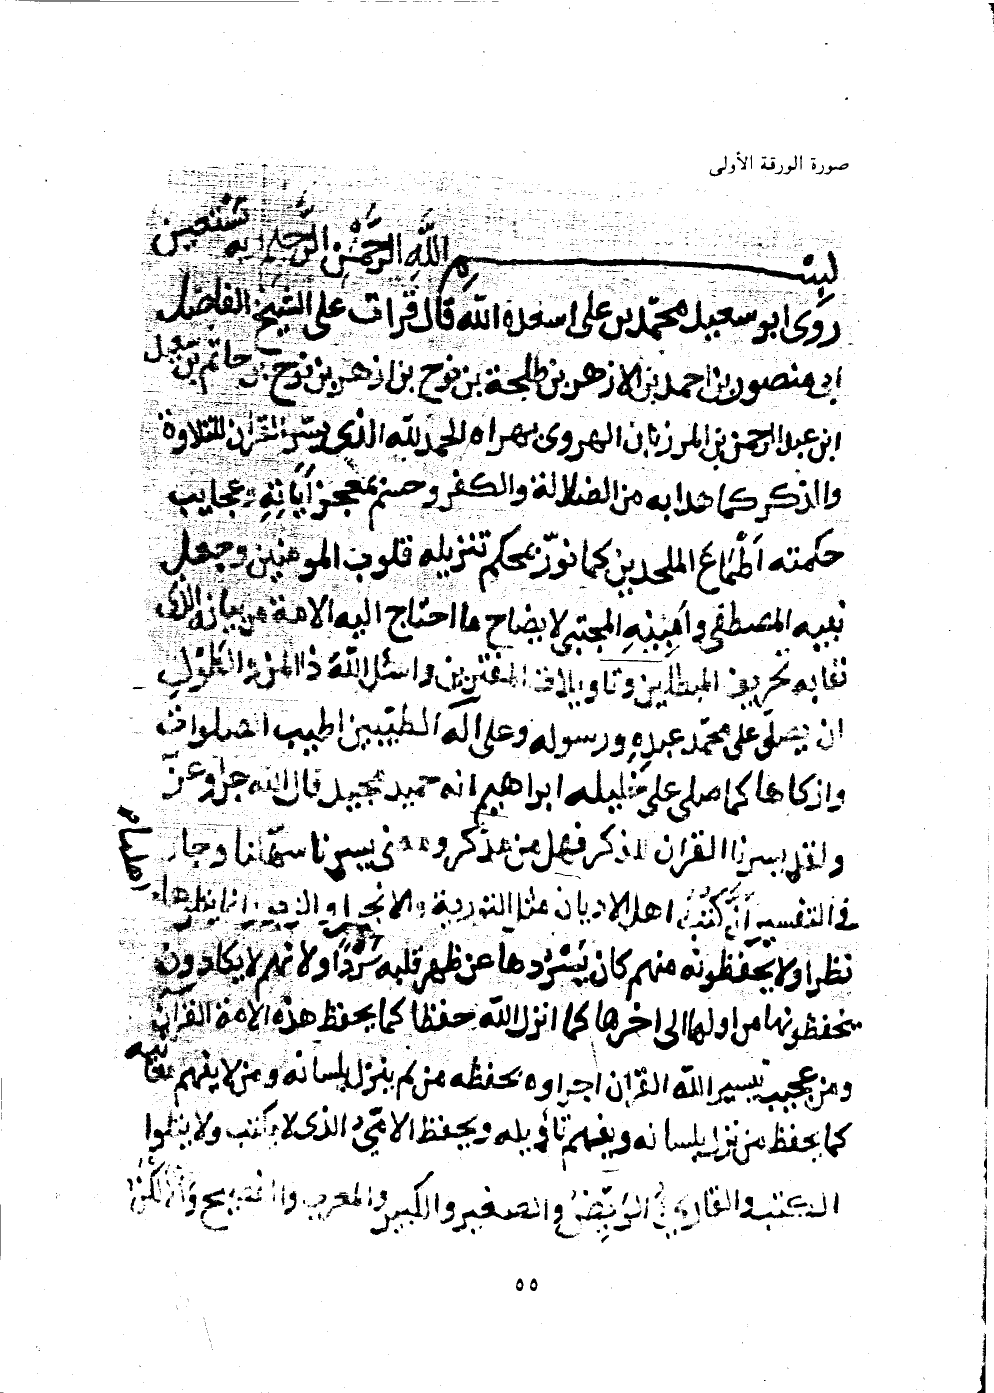 صورة الورقة الأولى
بسم الله الرحمن الرحيم به نستعين
روى ابو سعيد محمد بن على اسعده الله قال قرات على الشيخ الفاضل
ابى منصور بن احمد بن الازهر بن طلحة بن نوح بن ازهر بن نوح بن حاتم بن سعيل
ابن عبد الرحمن بن المرزبان الهروى بهراه الحمد لله الذى يسر القران للتلاوة
والذكر كما هدا به من الضلالة والكفر وحسم بمعجز آياته وعجايب
حكمته أطماع الملحدين كما نوّر بمحكم تنزيله قلوب المومنين وجعل
نبيه المصطفى وأمينه المجتبى لايضاح ما احتاج اليه الامة من بيانه الذى
نفا به تحريف المبطلين وتاويلات المفترين واسئل الله ذا المن والطول
ان يصلّى على محمّد عبده ورسوله وعلى اله الطيّبين اطيب الصلوات
وازكاها كما صلى على خليله ابراهيم انه حميد مجيد قال الله جل وعزّ
ولقد يسرنا القران للذكر فهل من مذكر ومعنى يسرنا سهّلنا وجاء
فى التفسير أنّ كتب اهل الاديان مثل التورية والانجيل والزبور انما يقرأها اهلها
نظرا ولا يحفظونه منهم كان يسرُدها عن ظهر قلبه سَردًا ولانهم لا يكادون
يحفظونها من اولها الى اخرها كما انزل الله حفظا كما يحفظ هذه الامة القرآن
ومن عجيب تيسير الله القران اجراوه بحفظه من لم ينزل بلسانه ومن لا يفهم معانيه
كما يحفظ من نزل بلسانه ويفهم تأويله ويحفظ الامّىّ الذى لا يكتب ولا يتلوا
الكتب والقارئ الرَّيّض والصغير والكبير والمعرب والفصيح والالكن
٥٥